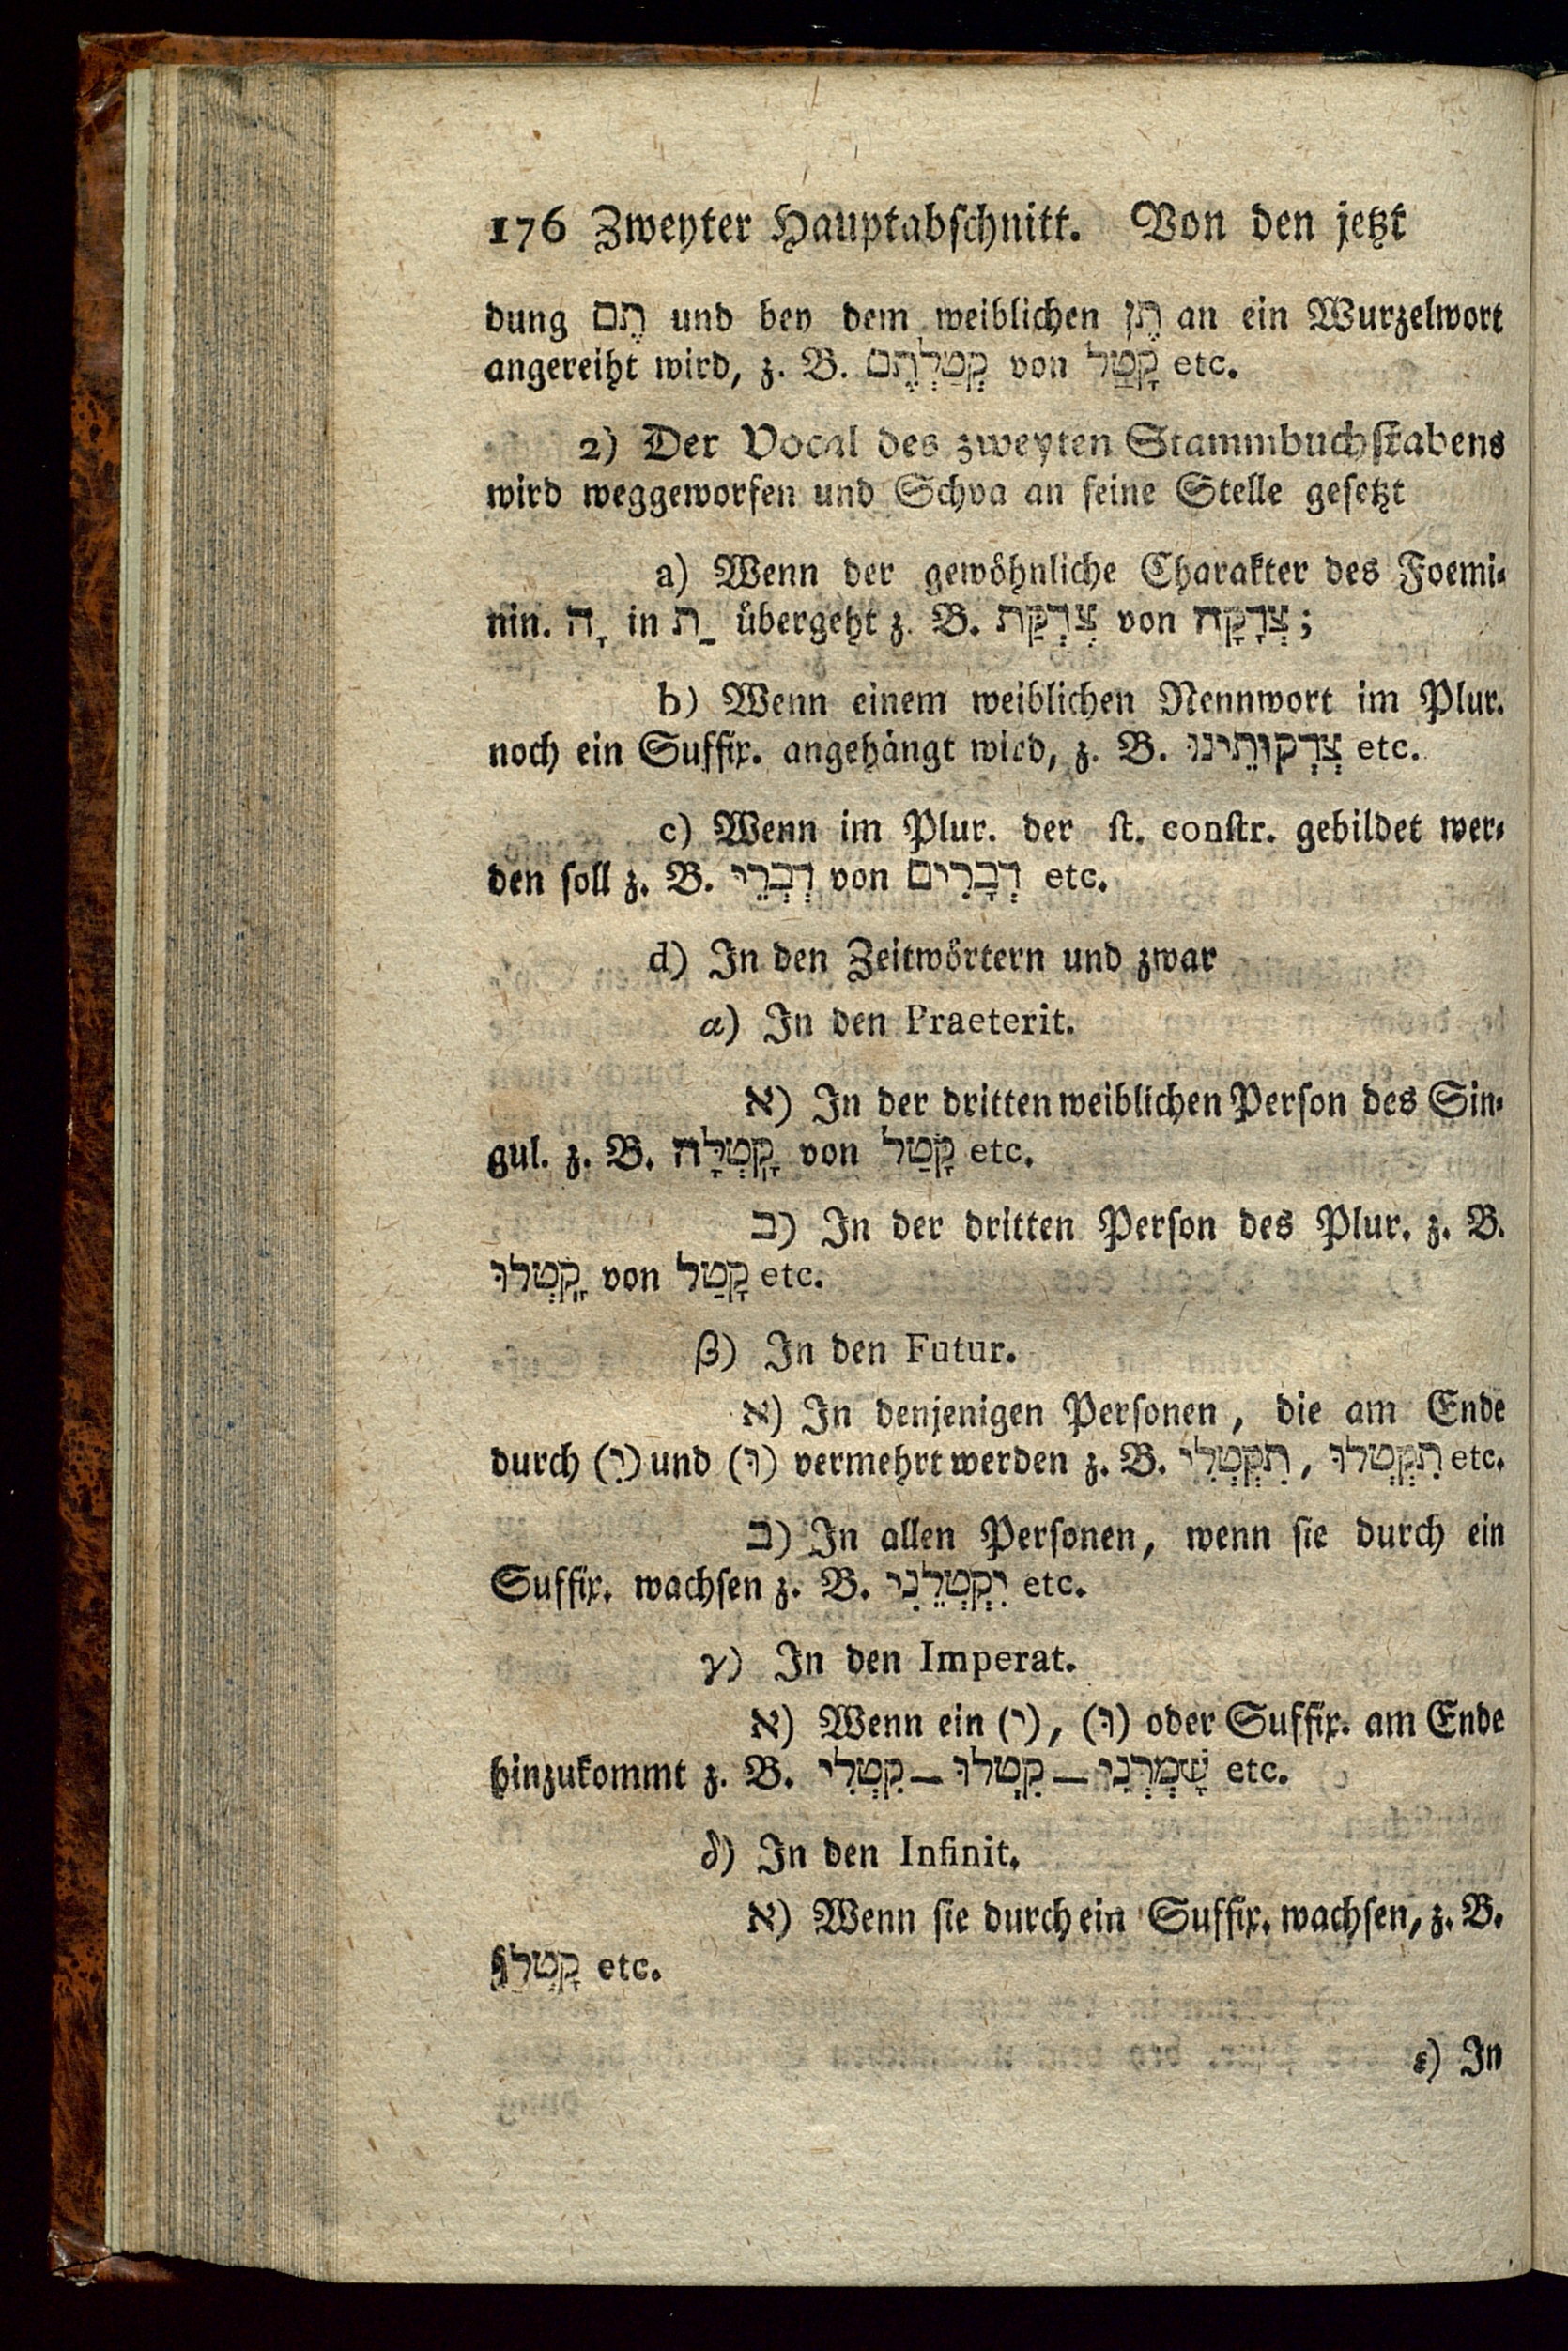 176 Zweyter Hauptabschnitt. Von den jetzt
dung תֶם und bey dem weiblichen תֶן an ein Wurzelwort
angereiht wird, z. B. קְטַלְתֶּם von קָטַל etc.
2) Der Vocal des zweyten Stammbuchstabens
wird weggeworfen und Schva an seine Stelle gesetzt
a) Wenn der gewöhnliche Charakter des Foemi-
nin. הָ in תַ übergeht z. B. צִדְקַת von צְדָקָה;
b) Wenn einem weiblichen Nennwort im Plur.
noch ein Suffix. angehängt wird, z. B. צִדְקוּתֵינוּ etc.
c) Wenn im Plur. der st. constr. gebildet wer-
den soll z. B. דְבְרֵי von דְבָרִים etc.
d) In den Zeitwörtern und zwar
α) In den Praeterit.
א) In der dritten weiblichen Person des Sin-
gul. z. B. קָטְלָה von קָטַל etc.
ב) In der dritten Person des Plur. z. B.
קָטְלוּ von קָטַל etc.
β) In den Futur.
א) In denjenigen Personen, die am Ende
durch (יִ) und (וּ) vermehrt werden z. B. תִקְטְלִי, תִקְטְלוּ etc.
ב) In allen Personen, wenn sie durch ein
Suffix. wachsen z. B. יִקְטְלֵנִי etc.
γ) In den Imperat.
א) Wenn ein (י), (וּ) oder Suffix. am Ende
hinzukommt z. B. קִטְלִי – קִטְלוּ – שָׁמְרְנִי etc.
δ) In den Infinit.
א) Wenn sie durch ein Suffix. wachsen, z. B.
קָטְלִי etc.
ε) In